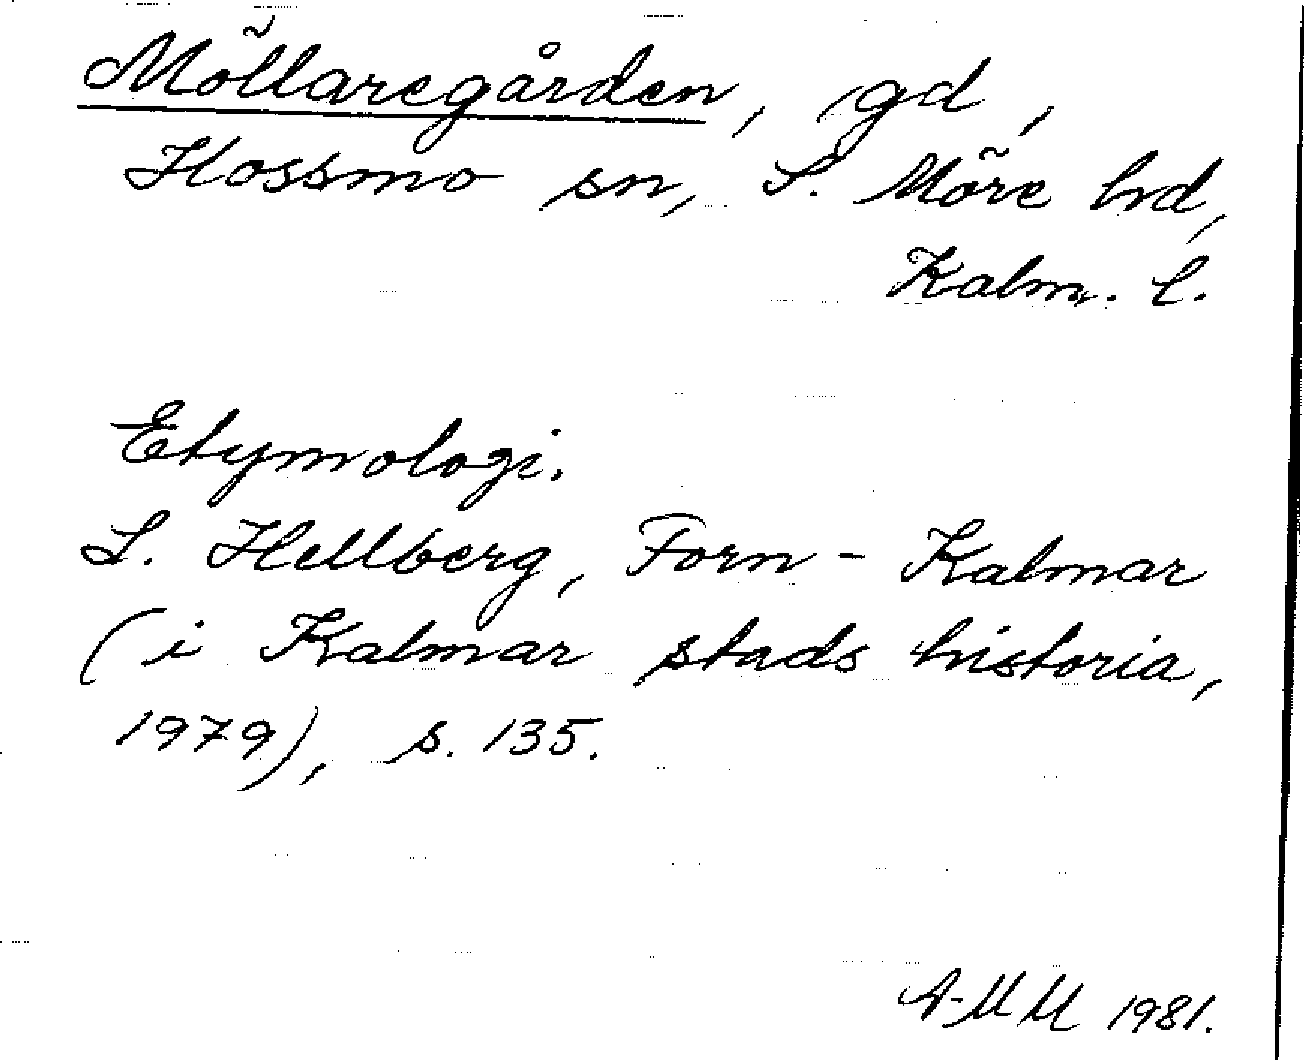 Möllaregården, gd,
Hossmo sn, S. Möre hd,
Kalm. l.
Etymologi.
L. Hellberg, Forn-Kalmar
(i Kalmar stads historia,
1979), s. 135.
A-MM 1981.